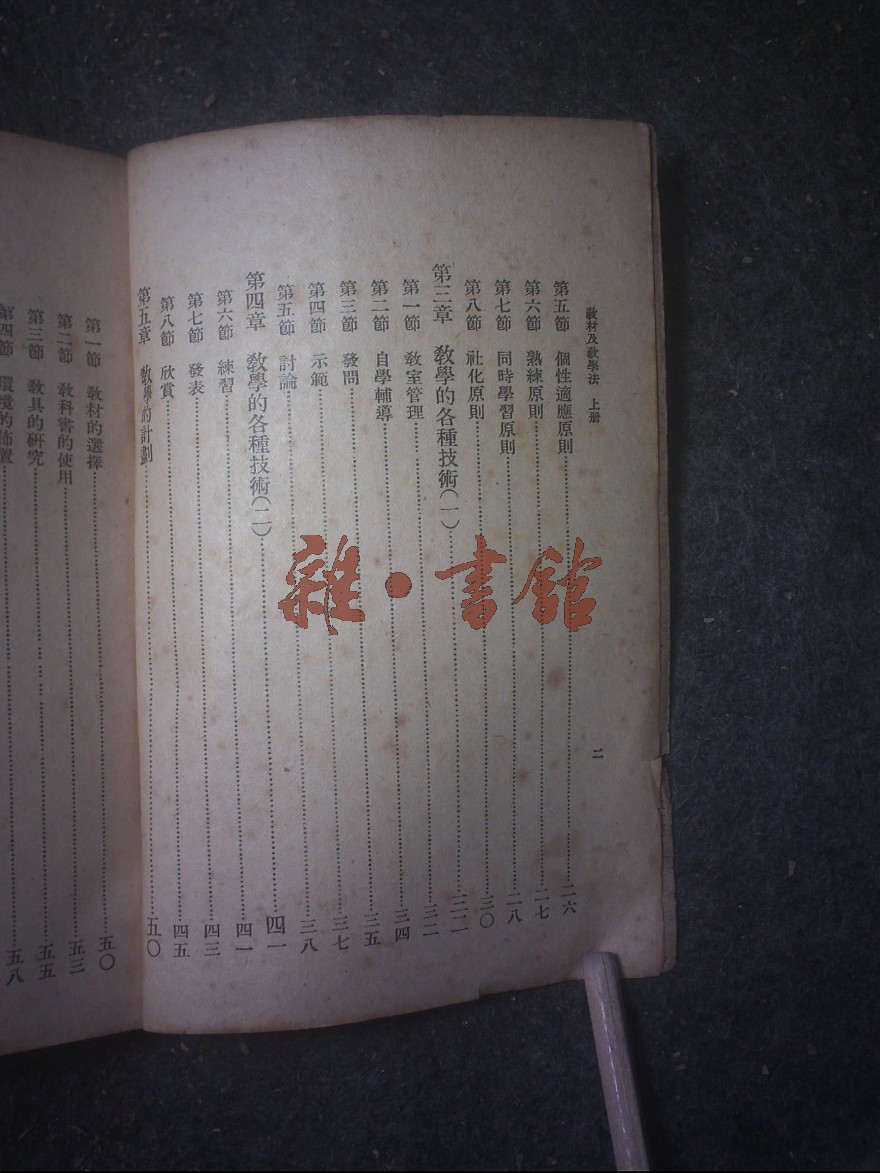 教材及教學法　上册
二
第五節　個性適應原則……二六
第六節　熟練原則……二七
第七節　同時學習原則……二八
第八節　社化原則……三〇
第三章　教學的各種技術(一)……三二
第一節　教室管理……三二
第二節　自學輔導……三四
第三節　發問……三五
第四節　示範……三七
第五節　討論……三八
第四章　教學的各種技術(二)……四一
第六節　練習……四一
第七節　發表……四三
第八節　欣賞……四五
第五章　教學的計劃……五〇
第一節　教材的選擇……五〇
第二節　教科書的使用……五三
第三節　教具的研究……五五
第四節　環境的佈置……五八
雜·書館